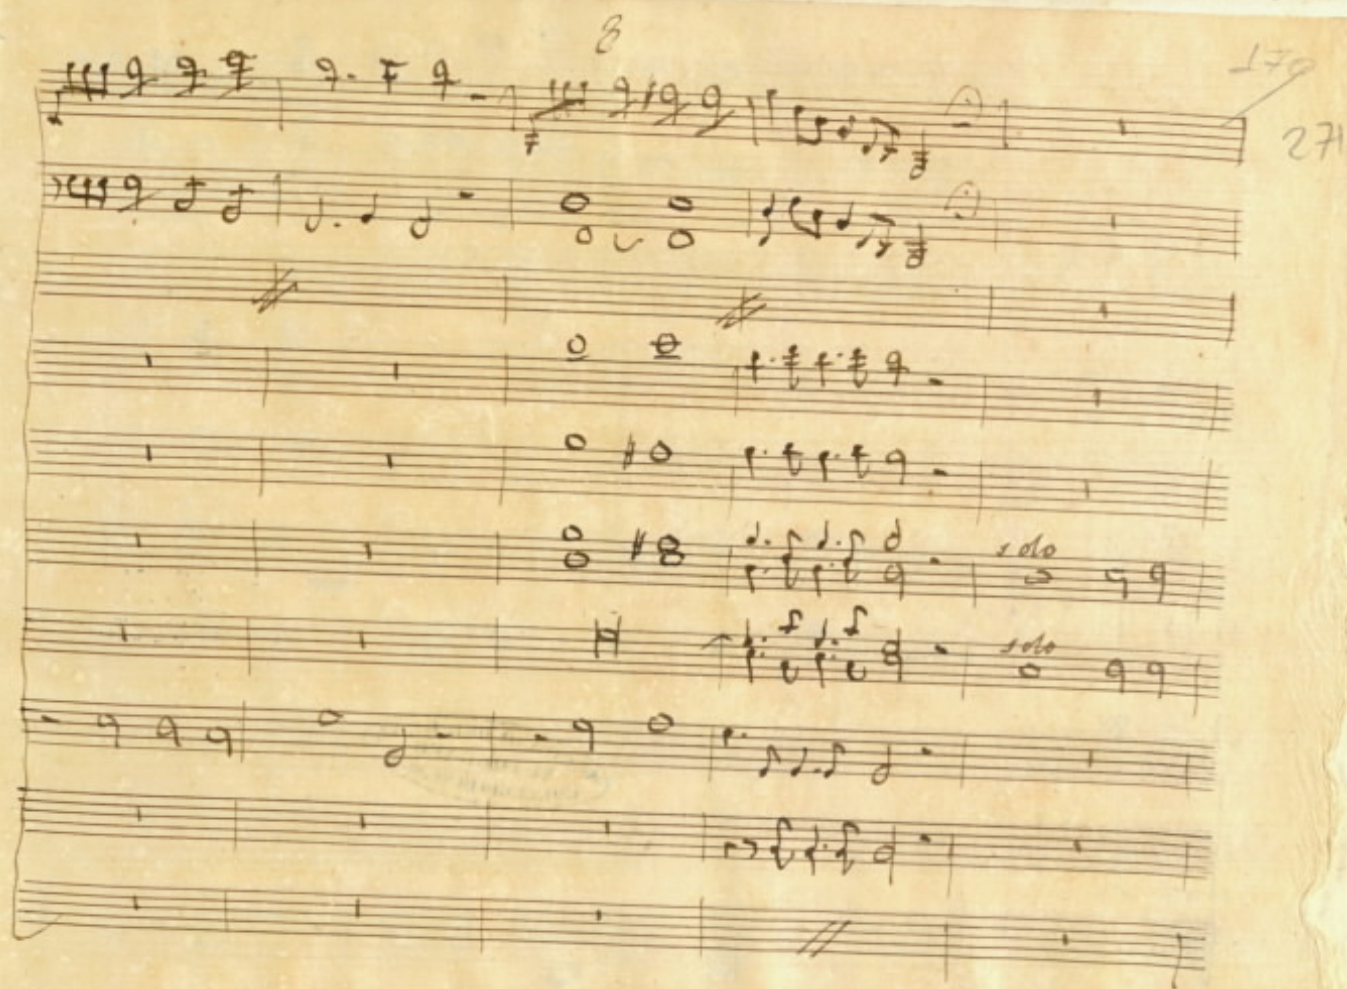 8
170
271
solo
solo